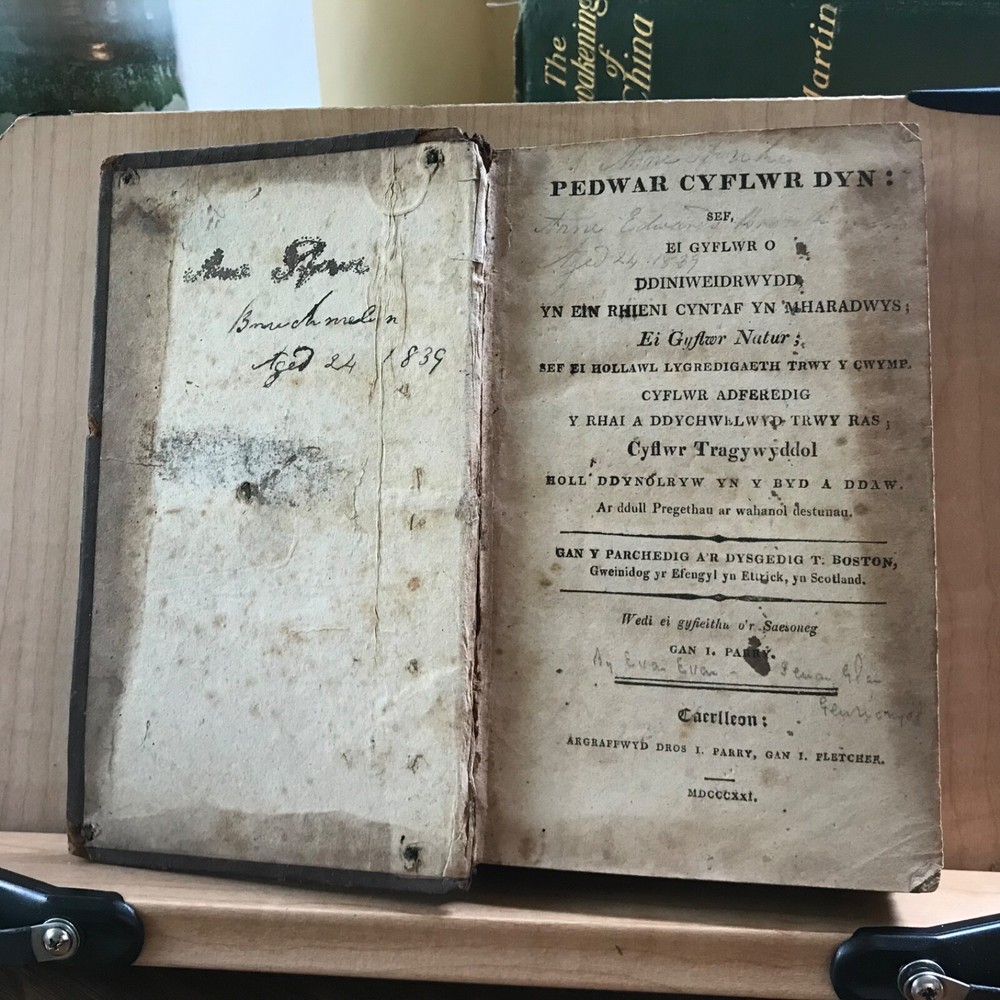 The
Awakening
of
China
Martin
Aged 24 1839
PEDWAR CYFLWR DYN:
SEF,
Anne Edwards
Aged 24 1839
EI GYFLWR O
DDINIWEIDRWYDD,
YN EIN RHIENI CYNTAF YN MHARADWYS;
Ei Gyflwr Natur;
SEF EI HOLLAWL LYGREDIGAETH TRWY Y CWYMP.
CYFLWR ADFEREDIG
Y RHAI A DDYCHWELWYD TRWY RAS;
Cyflwr Tragywyddol
HOLL DDYNOLRYW YN Y BYD A DDAW.
Ar ddull Pregethau ar wahanol destunau.
GAN Y PARCHEDIG A'R DYSGEDIG T. BOSTON,
Gweinidog yr Efengyl yn Ettrick, yn Scotland.
Wedi ei gyfieithu o'r Saesoneg
GAN I. PARRY.
By Evan Evan
Caerlleon:
ARGRAFFWYD DROS I. PARRY, GAN I. FLETCHER.
MDCCCXXI.